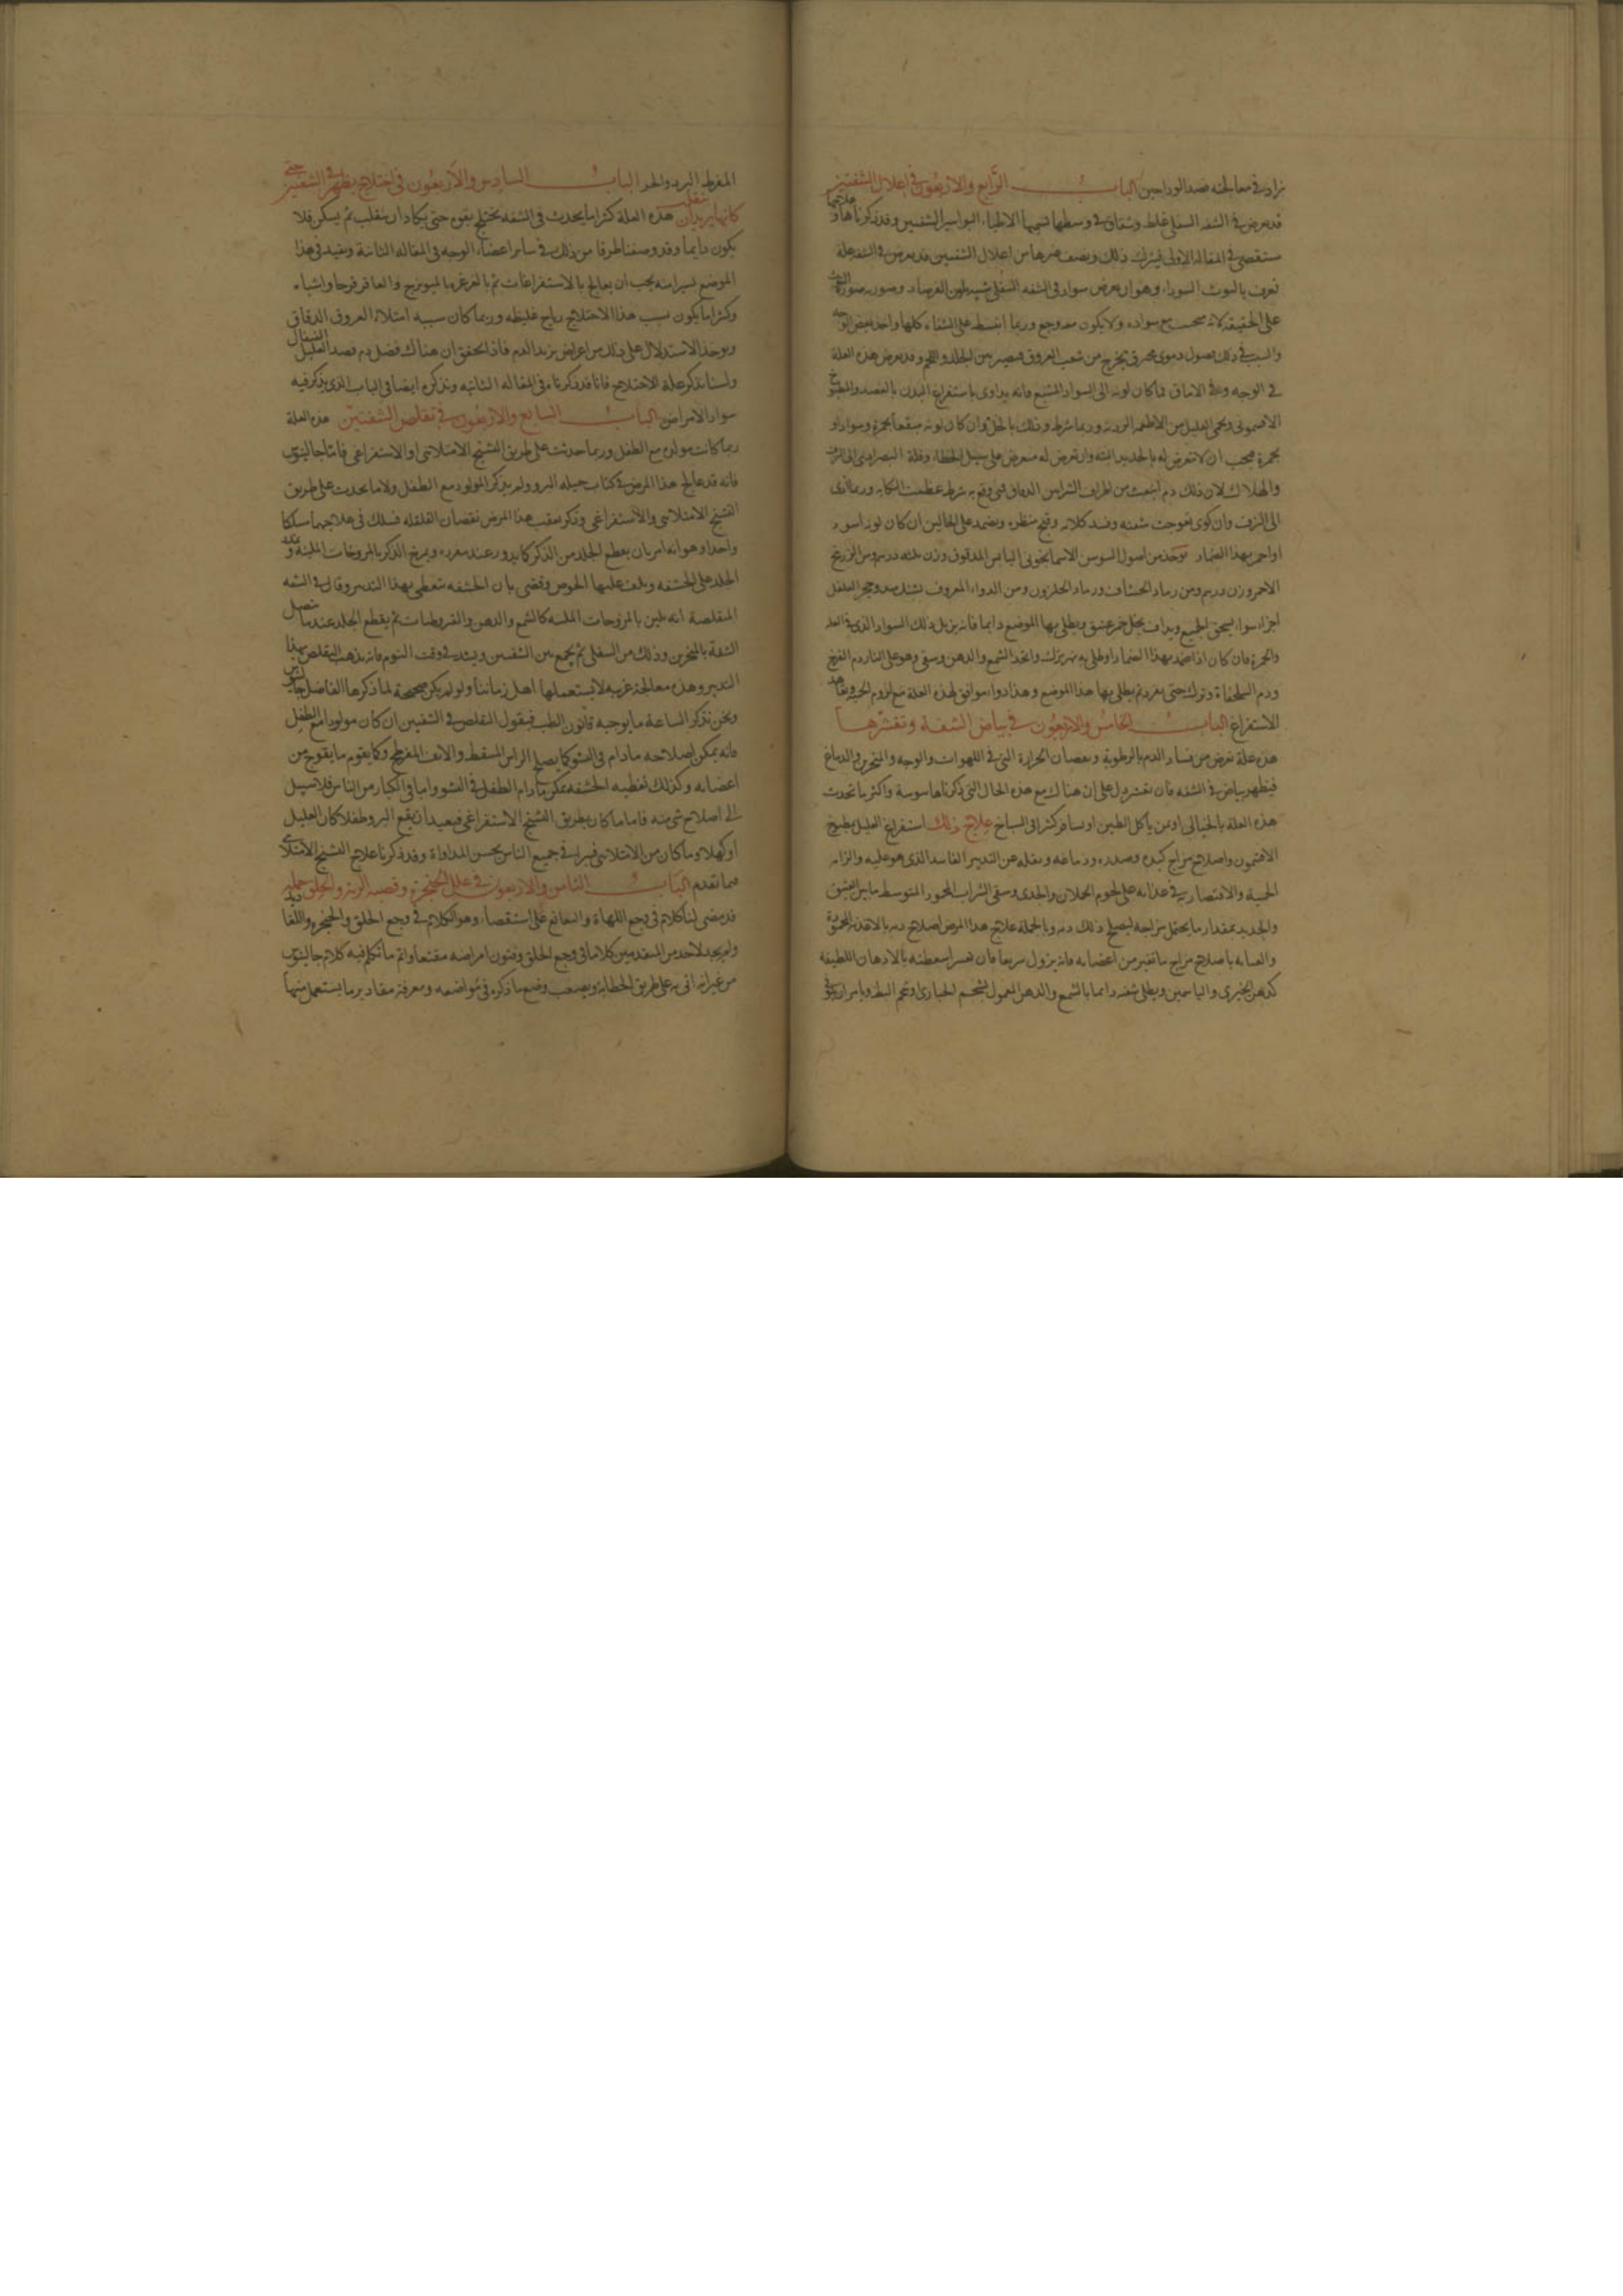 نزاد في معالجته فصد الوداجين الباب الرابع والاربعون في اعلال الشفتين
قد يعرض في الشفة السفلى غلظ وشقاق في وسطها تسميها الاطباء البواسير الشفتين وقد ذكرناها وعلاجها
مستقصى في المقالة الاولى فيترك ذلك ونصف غيرها من اعلال الشفتين قد يعرض في الشفة علة
تعرف بالتوث السوداء وهو ان يعرض سواد في الشفة السفلى شبيه بلون الفرصاد وصورته صورة التوث
على الحقيقة لانه مع سواده ولا يكون معه وجع وربما انبسط على الشفاء كلها واخذ بعض الوجه
والسبب في ذلك فصول دموى محترق يخرج من شعب العروق فيصير بين الجلد واللحم وقد يعرض هذه العلة
في الوجه وفي الاماق فما كان لونه الى السواد المشبع فانه يداوى باستفراغ البدن بالفصد والمطبوخ
الافتيمونى ويحمى العليل من الاطعمة الردية وربما شرط ودلك بالخل وان كان لونه مبقعا بحمرة وسواد او
بحمرة فيجب ان لا تتعرض له بالحديد البتة وان تعرض له متعرض على سبيل الخطاء وقلة البصر ادى الى النزف
والهلاك لان ذلك دم انبعث من اطراف الشرايين الدقاق فمتى وقع به شرط عظمت النكاية وربما ادى
الى النزف وان كوى تعوجت شفته وفسد كلامه وقبح منظره ويضمد على الحالين ان كان لونه اسود
او احمر بهذا الضماد يوخذ من اصول السوسن الاسمانجونى اليابس المدقوق وزن ثلثه دراهم ومن الزرنيخ
الاحمر وزن درهم ومن رماد الخشاف ورماد الحلزون ومن الدواء المعروف وحجر الفلفل
اجزاء سواء يسحق الجميع ويداف بخل خمر عتيق ويطلى بها الموضع دايما فانه يزيل ذلك السواد الذى في العلة
والحمرة فان كان اذا ضمد بهذا الضماد او طلى به ترك واتخذ الشمع والدهن وسقى وهو على النار دم الفرخ
ودم السلحفاة وترك حتى يبرد ثم يطلى بها هذا الموضع وهذا دواء موافق لهذه العلة مع لزوم الحمية وتعاهد
الاستفراغ الباب الخامس والاربعون في بياض الشفة وتقشرها
هذه علة تعرض من فساد الدم بالرطوبة ونقصان الحرارة التى في اللهوات والوجه والمنخرين والدماغ
فيظهر بياض في الشفة فان تقشر دل على ان هناك مع هذه الحال التى ذكرناها سوسة واكثر ما تحدث
هذه العلة بالحبالى او بمن ياكل الطين او يسافر كثيرا في السباخ علاج ذلك استفراغ العليل بطبيخ
الافتيمون واصلاح مزاج كبده وصدره ودماغه ونقله عن التدبير الفاسد الذى هو عليه والزامه
الحمية والاقتصار به في غذائه على لحوم الحملان والجدى وسقى الشراب المحمود المتوسط ما بين العتيق
والجديد بمقدار ما يحتمل مزاجه ليصلح ذلك دمه وبالجملة علاج هذا المرض اصلاح دمه بالاغذية المحمودة
والعناية باصلاح مزاج ما تغير من اعضائه فانه يزول سريعا فان عسر اسعطته بالادهان اللطيفة
كدهن الخيرى والياسمين ويطلى شفته دائما بالشمع والدهن المعمول بشحم الحبارى وشحم البط ويامر ان يتوقى
المفرط البرد والحر الباب السادس والاربعون في اختلاج يظهر في الشفتين حتى
كانها يريدان تنقلب هذه العلة كثيرا ما يحدث في الشفة يختلج بقوة حتى يكاد ان ينقلب ثم يسكن فلا
يكون دايما وقد وصفنا طرفا من ذلك في ساير اعضاء الوجه في المقالة الثانية ونعيد في هذا
الموضع يسيرا منه يجب ان يعالج بالاستفراغات ثم بالغرغرة بالميويزج والعاقرقرحا واشباه
وكثيرا ما يكون سبب هذا الاختلاج رياح غليظه وربما كان سببه امتلاء العروق الدقاق
ويوخذ الاستدلال على ذلك من اعراض يزيد الدم فاذا تحقق ان هناك فضل دم فصد العليل القيفال
ولسنا نذكر علة الاختلاج فانا قد ذكرناه في المقاله الثانيه ونذكره ايضا في الباب الذى يذكر فيه
سواد الامراض الباب السابع والاربعون في تقلص الشفتين هذه العلة
ربما كانت مولده مع الطفل وربما حدثت على طريق التشنج الامتلائى او الاستفراغى فاما جالينوس
فانه قد عالج هذا المرض في كتاب حيله البرو ولم يذكر المولود مع الطفل ولا ما يحدث على طريق
التشنج الامتلائى والاستفراغى وذكر بعقب هذا المرض نقصان القلفه فسلك في علاجهما مسلكا
واحدا وهو انه امر بان يقطع الجلد من الذكر كما يدور عند مغرزه ويمرخ الذكر بالمروخات الملينة ويمد
الجلد على الحشفه ويلف عليها الخوص وقضى بان الحشفه تتغطى بهذا التدبير وقال في الشفه
المتقلصة انه تلين بالمروخات الملينه كالشمع والدهن والقيروطيات ثم يقطع الجلد عند ما تتصل
الشفة بالمنخرين وذلك من السفلى ثم يجمع بين الشفتين ويشد في وقت النوم فانه يذهب التقلص بهذا
التدبير وهذه معالجة غريبه لا يستعملها اهل زماننا ولو لم يكن صحيحة لما ذكرها الفاضل جالينوس
ونحن نذكر الساعة ما يوجبه قانون الطب فيقول التقلص في الشفتين ان كان مولودا مع الطفل
فانه يمكن اصلاحه ما دام في النشو كما يصلح الراس المسفط والانف المفرطح وكما يقوم ما يعوج من
اعضائه وكذلك تغطيه الحشفه يمكن ما دام الطفل في النشو واما في الكبار من الناس فلا سبيل
الى اصلاح شى منه فاما ما كان بطريق التشنج الاستفراغى فبعيد ان يقع البرو طفلا كان العليل
او كهلا وما كان من الامتلائى فيبرا في جميع الناس بحسن المداواة وقد ذكرنا علاج التشنج الامتلائى
فيما تقدم الباب الثامن والاربعون في علل الحنجرة وقصبه الرية والحلق جملة
قد مضى لنا كلام في وجع اللهاة والنغانغ على استقصاء وهو الكلام في وجع الحلق والحنجرة
ولم يجد لاحد من المتقدمين كلاما في وجع الحلق وفنون امراضه مقنعا واتم ما تكلم فيه كلام جالينوس
من غير انه اتى به على طريق الخطابة ويصعب وضع ما ذكره في مواضعه ومعرفة مقادير ما يستعمل منها